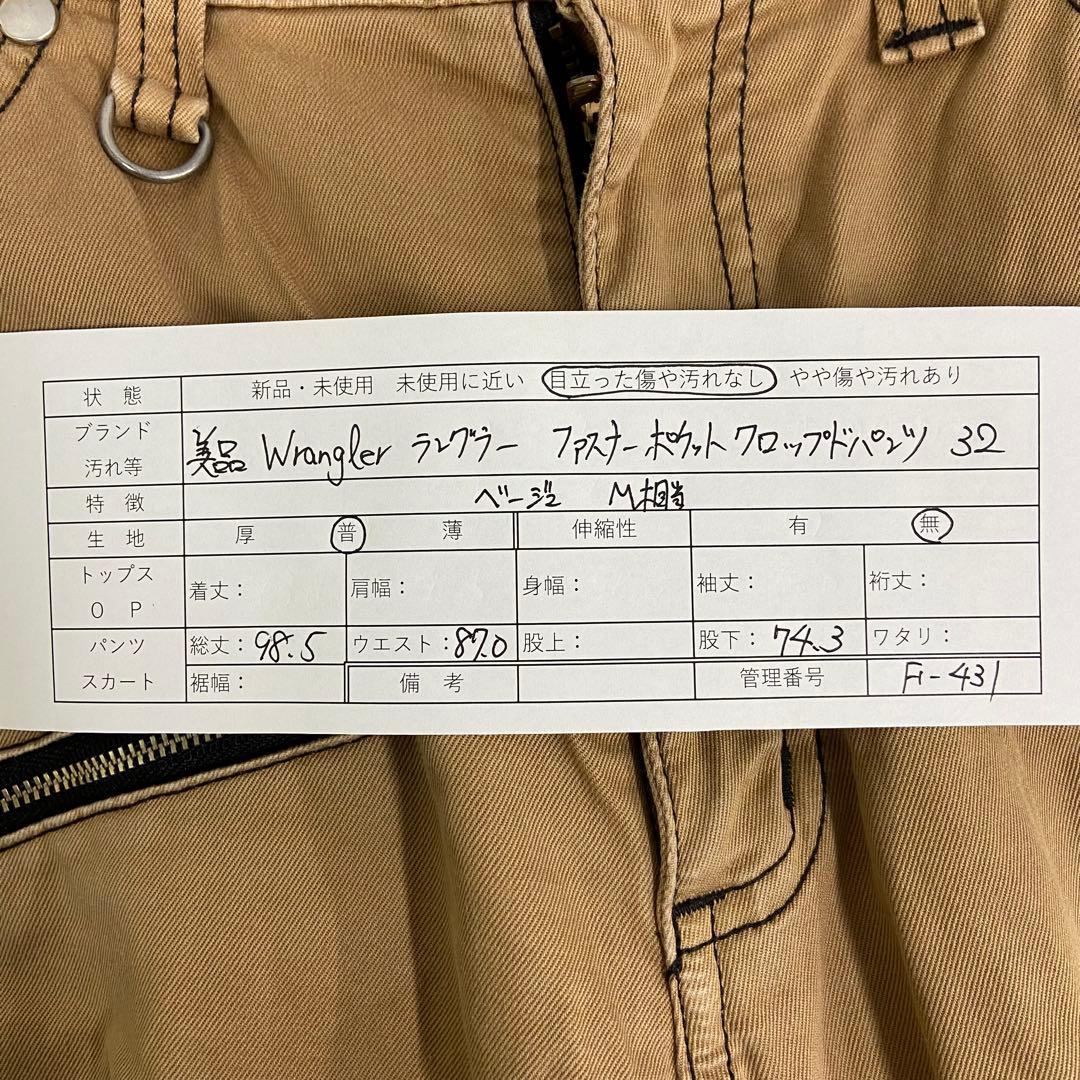 状態 新品・未使用 未使用に近い 目立った傷や汚れなし やや傷や汚れあり
ブランド
汚れ等 美品 Wrangler ラングラー ファスナーポケットクロップドパンツ 32
特徴 ベージュ M相当
生地 厚 普 薄 伸縮性 有 無
トップス
OP 着丈: 肩幅: 身幅: 袖丈: 裄丈:
パンツ 総丈:98.5 ウエスト:87.0 股上: 股下:74.3 ワタリ:
スカート 裾幅: 備考 管理番号 Fi-431